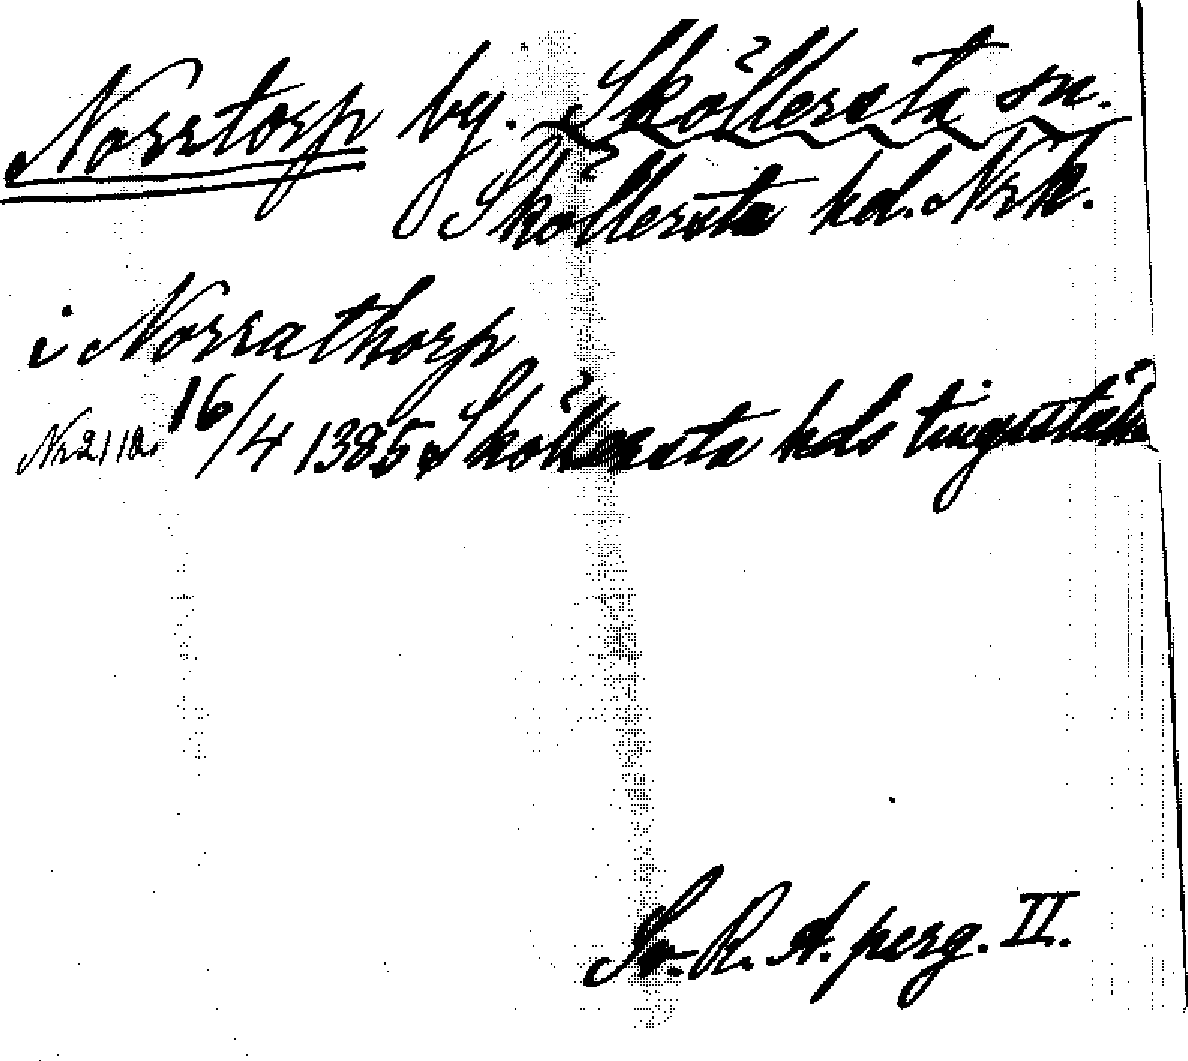 Norrtorp by. Sköllersta sn.
Sköllersta hd. Nrk.
i Norrathorp
Nr 2112. 16/4 1385 Sköllersta hds tingställe
Sv. R. A. perg. II.